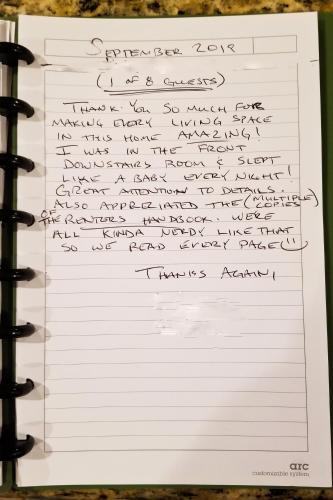 SEPTEMBER 2019
(1 OF 8 GUESTS)
THANK YOU SO MUCH FOR
MAKING EVERY LIVING SPACE
IN THIS HOME AMAZING!
I WAS IN THE FRONT
DOWNSTAIRS ROOM & SLEPT
LIKE A BABY EVERY NIGHT!
GREAT ATTENTION TO DETAILS.
ALSO APPRECIATED THE (MULTIPLE COPIES)
OF THE RENTERS HANDBOOK. WERE
ALL KINDA NERDY LIKE THAT
SO WE READ EVERY PAGE
THANKS AGAIN,
arc
customizable system